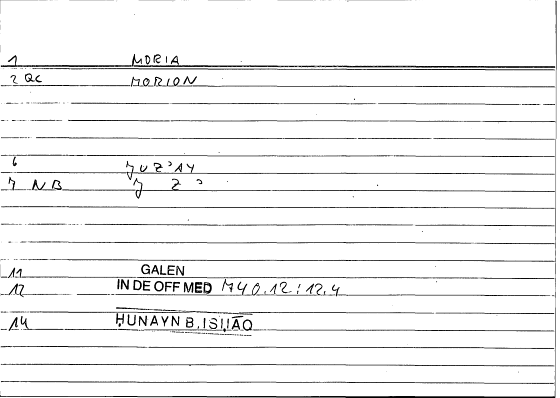 1 MORIA
2 QC MORION
6 ǦUZ'AY
7 NB Ǧ Z '
11 GALEN
12 IN DE OFF MED M40.12:12.4
14 ḤUNAYN B.ISḤĀQ